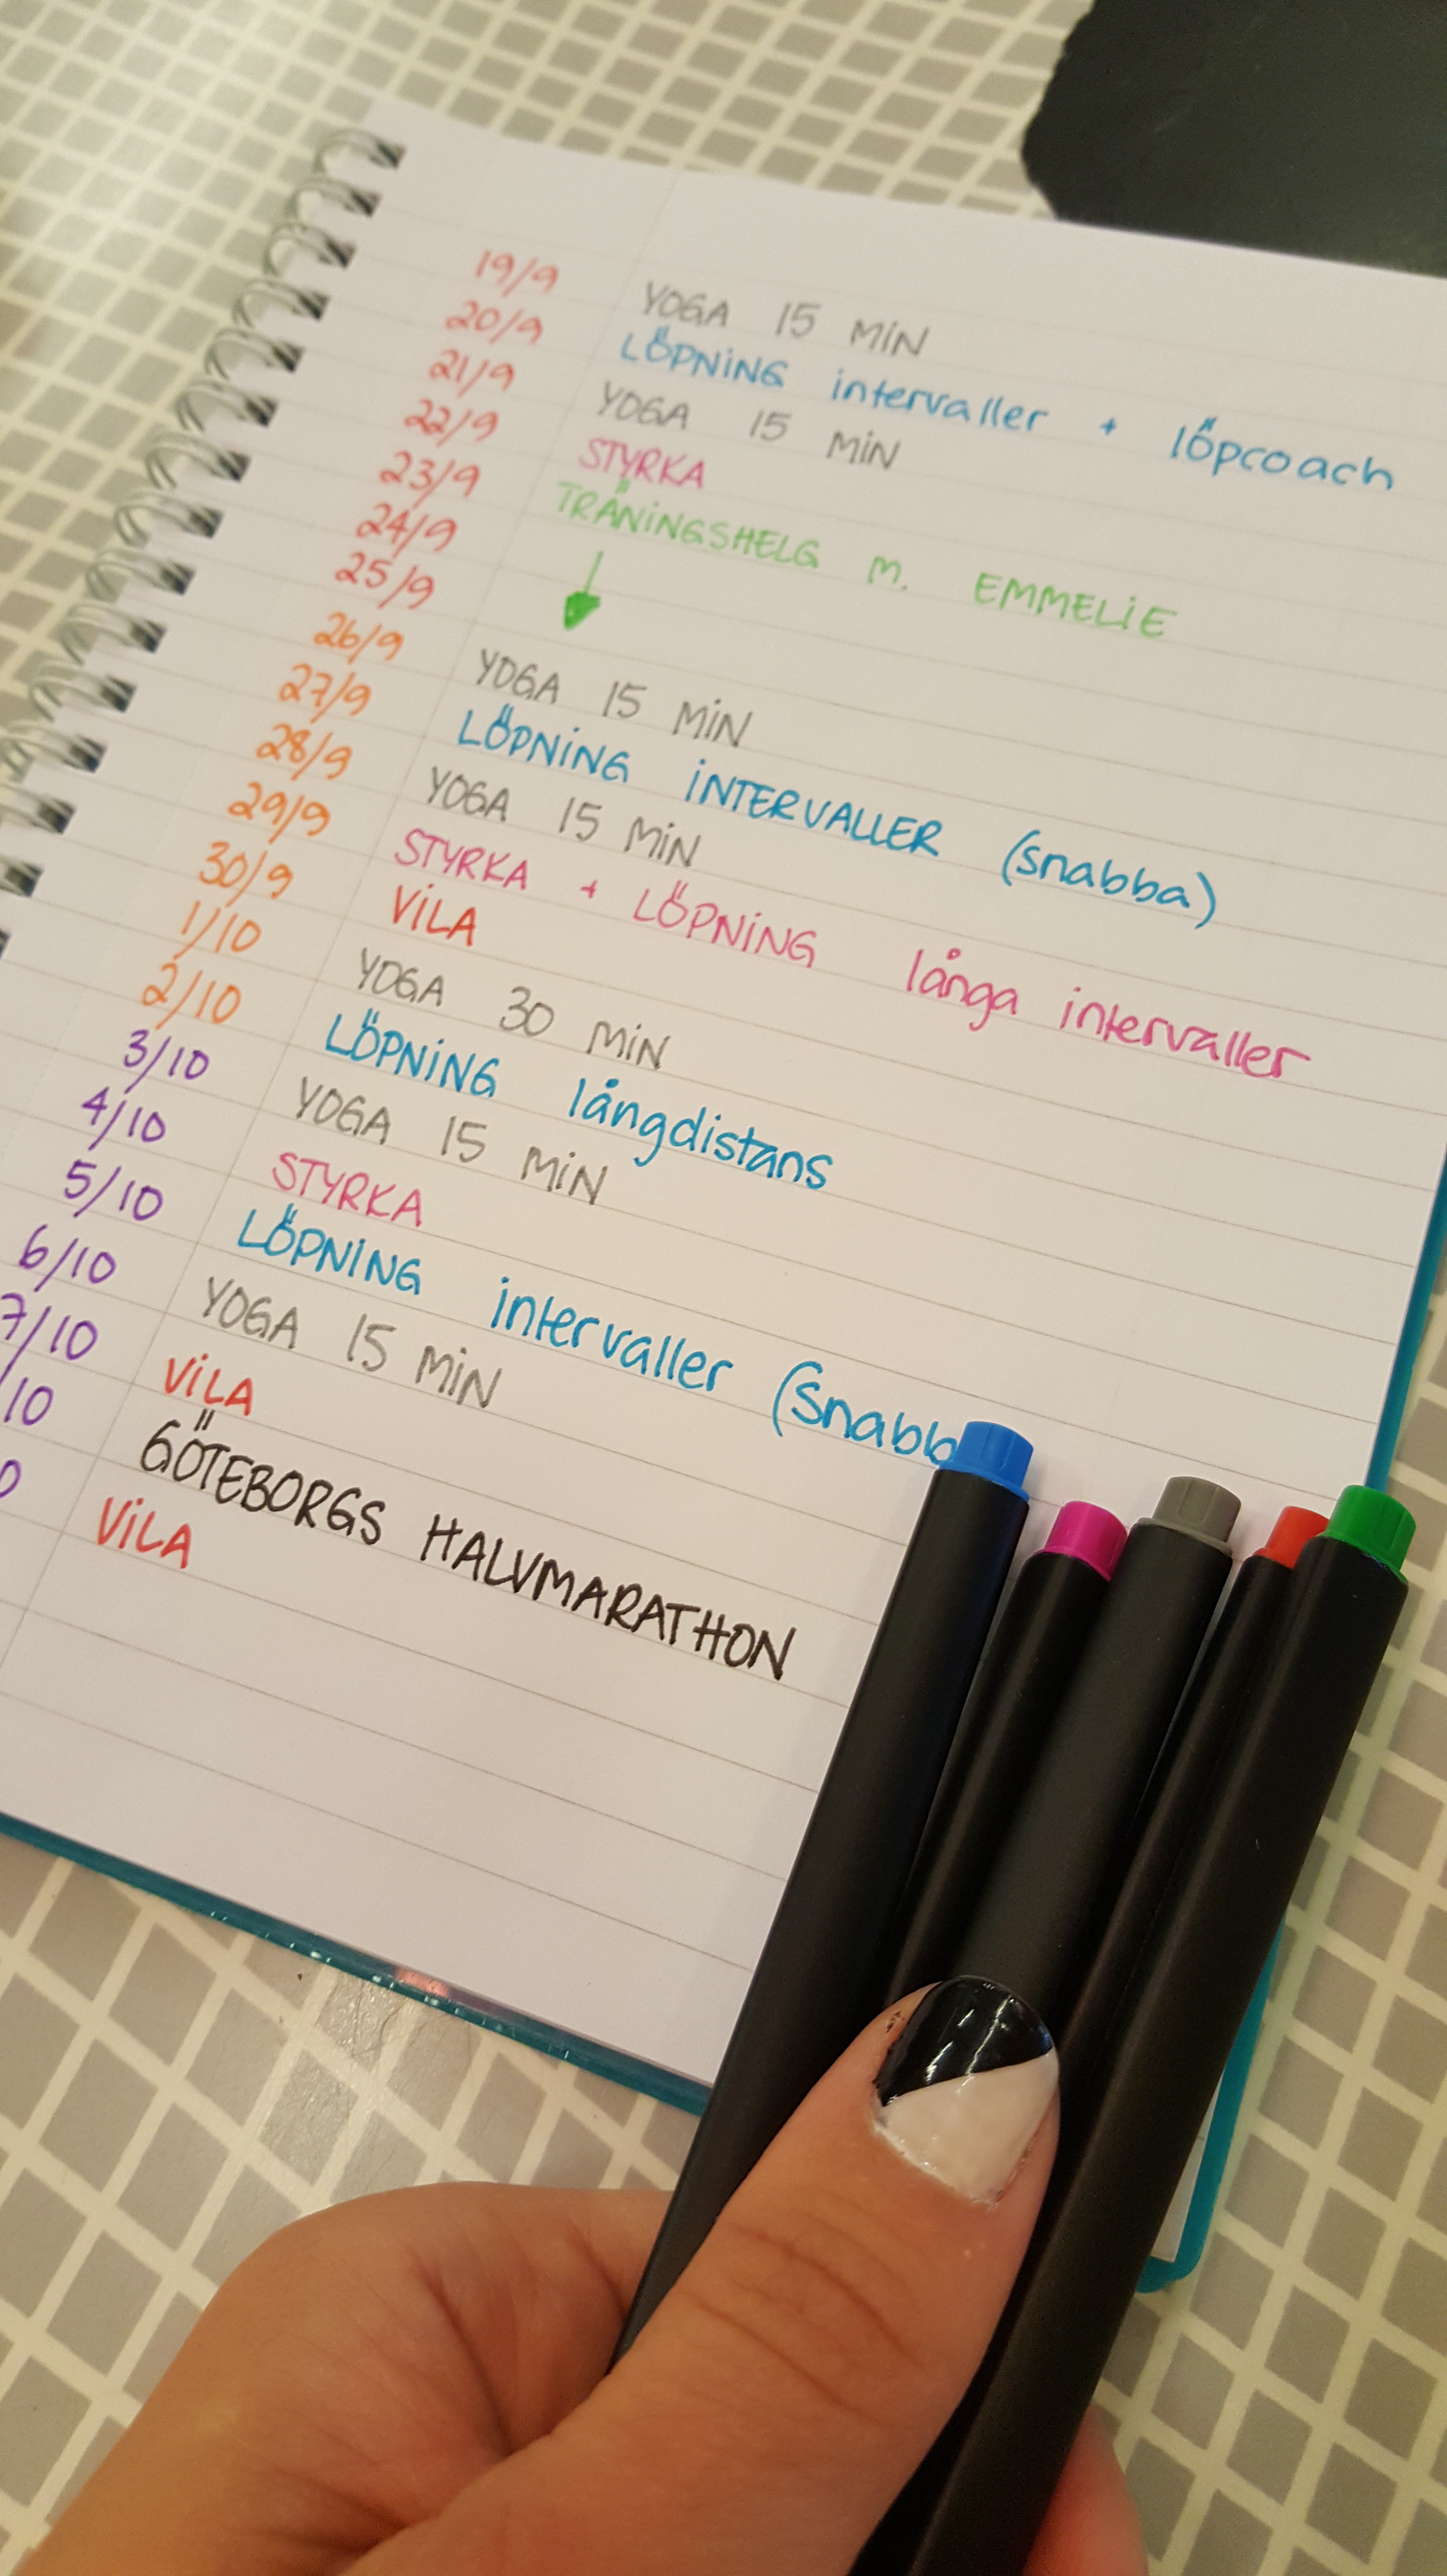 19/9 YOGA 15 MIN
20/9 LÖPNING intervaller + löpcoach
21/9 YOGA 15 MIN
22/9 STYRKA
23/9 TRÄNINGSHELG M. EMMELIE
24/9
25/9
26/9 YOGA 15 MIN
27/9 LÖPNING INTERVALLER (snabba)
28/9 YOGA 15 MIN
29/9 STYRKA + LÖPNING långa intervaller
30/9 VILA
1/10 YOGA 30 MIN
2/10 LÖPNING långdistans
3/10 YOGA 15 MIN
4/10 STYRKA
5/10 LÖPNING intervaller (snabb
6/10 YOGA 15 MIN
7/10 VILA
/10 GÖTEBORGS HALVMARATHON
0 VILA